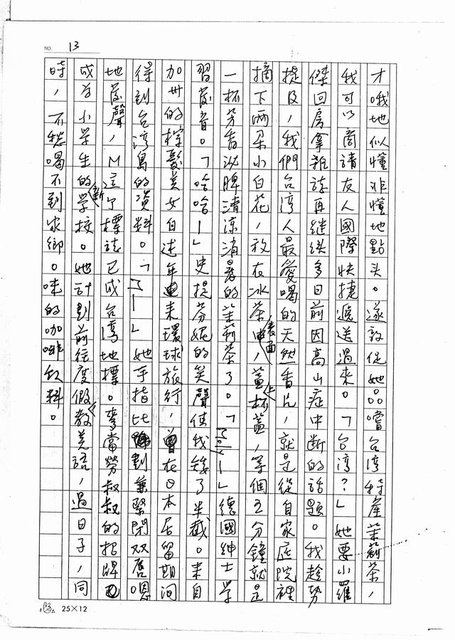 NO. 13
才哦地似懂非懂地點頭。遂敦促她品嚐台灣特產茉莉茶,
我可以商請友人國際快捷遞送過來。「台灣?」她要小羅
傑回房拿雜誌再繼續多日前因高山症中斷的話題。我趁勢
提及,我們台灣人最愛喝的天然香片,就是從自家庭院裡
摘下兩朵小白花,放在冰茶裡面,蓋上杯蓋,等個五分鐘就是
一杯芳香沁脾清涼消暑的茉莉茶了。「ㄇㄛˋ—」德國紳士學
習發音。「哈哈—」史提芬妮的笑聲使我矮了半截。來自
加州的棕髮美女自述年來環球旅行,曾在日本居留期間
得到台灣島的資料。「M—」她手指比劃緊閉雙唇嗯
地發聲,M這個標誌已成台灣地標。麥當勞叔叔的招牌
成為小學生的新學校。她計劃前往度假教美語,過日子,同
時,不愁喝不到家鄉。味的咖啡飲料。
25×12